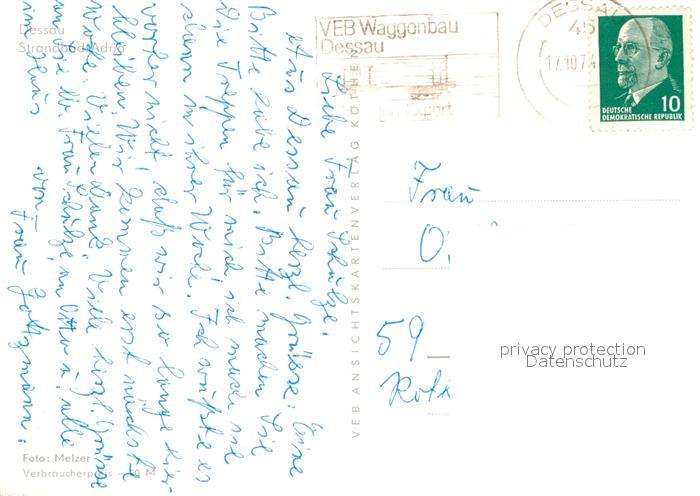 Dessau
Strandbad Adria
Liebe Frau Schulze.
aus Dessau herzl. Grüsse. Eine
Bitte habe ich. Bitte machen Sie
die Treppen für mich ich mache sie
dann in ihrer Woche. Ich wußte es
vorher nicht, daß wir so lange hier
bleiben. Wir kommen erst nächste
Woche. Vielen Dank. Viele herzl. Grüsse
an Sie u. Frau Schulze, an Otto u. alle
im Haus
von Frau
Foto: Melzer
Verbraucherpreis -,20 M
VEB ANSICHTSKARTENVERLAG KÖTHEN
VEB Waggonbau
Dessau
Export
DESSAU
45
17.10.74
10
DEUTSCHE
DEMOKRATISCHE REPUBLIK
Frau
O.
59
privacy protection
Datenschutz